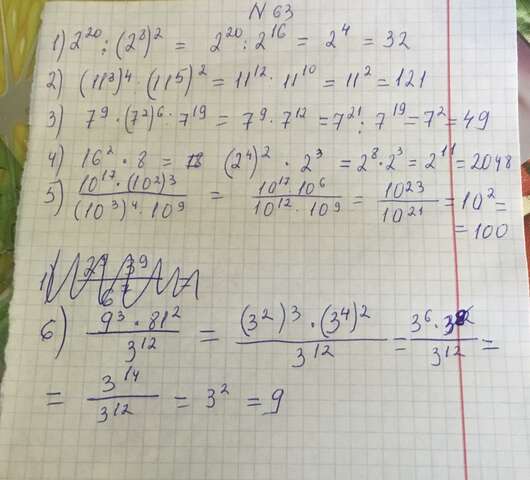 N 63
1) 2²⁰ : (2⁸)² = 2²⁰ : 2¹⁶ = 2⁴ = 32
2) (11³)⁴ · (11⁵)² = 11¹² · 11¹⁰ = 11² = 121
3) 7⁹ · (7²)⁶ · 7¹⁹ = 7⁹ · 7¹² = 7²¹ : 7¹⁹ = 7² = 49
4) 16² · 8 = (2⁴)² · 2³ = 2⁸ · 2³ = 2¹¹ = 2048
5) 10¹⁷ · (10²)³ / (10³)⁴ · 10⁹ = 10¹⁷ · 10⁶ / 10¹² · 10⁹ = 10²³ / 10²¹ = 10² =
= 100
6) 9³ · 81² / 3¹² = (3²)³ · (3⁴)² / 3¹² = 3⁶ · 3⁸ / 3¹² =
= 3¹⁴ / 3¹² = 3² = 9